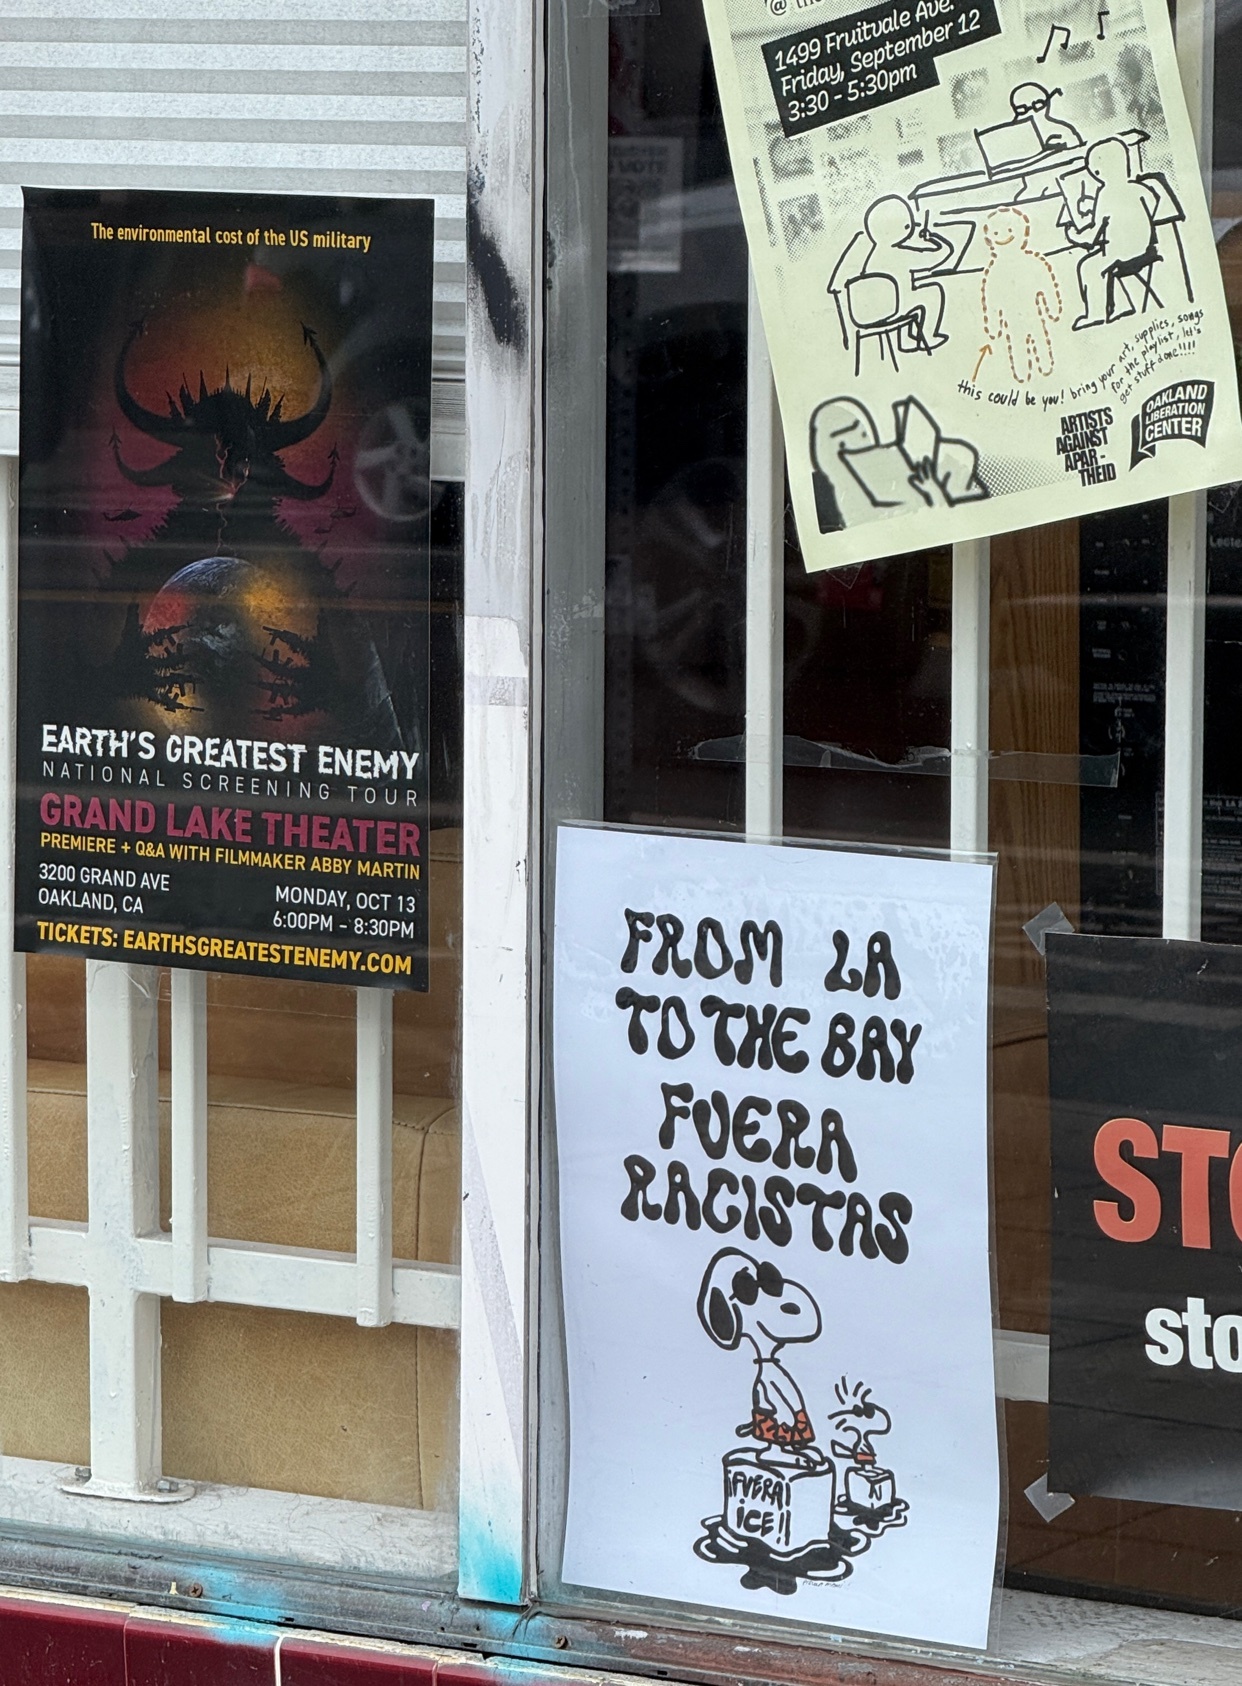 The environmental cost of the US military
EARTH'S GREATEST ENEMY
NATIONAL SCREENING TOUR
GRAND LAKE THEATER
PREMIERE + Q&A WITH FILMMAKER ABBY MARTIN
3200 GRAND AVE
OAKLAND, CA
MONDAY, OCT 13
6:00PM - 8:30PM
TICKETS: EARTHSGREATESTENEMY.COM
1499 Fruitvale Ave.
Friday, September 12
3:30 - 5:30pm
this could be you! bring your art, supplies, songs
for the playlist, let's
get stuff done!!!!
ARTISTS
AGAINST
APAR-
THEID
OAKLAND
LIBERATION
CENTER
FROM LA
TO THE BAY
FUERA
RACISTAS
¡FUERA!
ICE!!
STO
sto